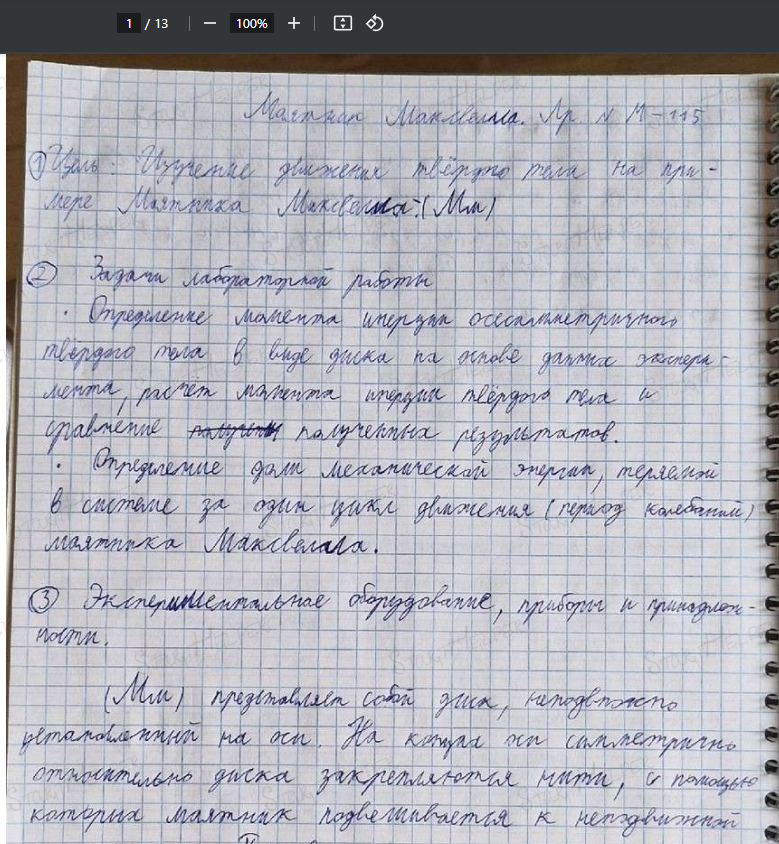 1 / 13 — 100% +
Маятник Максвелла. Лр N М-115
① Цель: Изучение движения твёрдого тела на при-
мере Маятника Максвелла. (Мм)
② Задачи лабораторной работы
· Определение момента инерции осесимметричного
твёрдого тела в виде диска на основе данных экспери-
мента, расчет момента инерции твёрдого тела и
сравнение полученных результатов.
· Определение доли механической энергии, теряемой
в системе за один цикл движения (период колебаний)
маятника Максвелла.
③ Экспериментальное оборудование, приборы и принадлеж-
ности.
(Мм) представляет собой диск, неподвижно
установленный на оси. На концах оси симметрично
относительно диска закрепляются нити, с помощью
которых маятник подвешивается к неподвижной